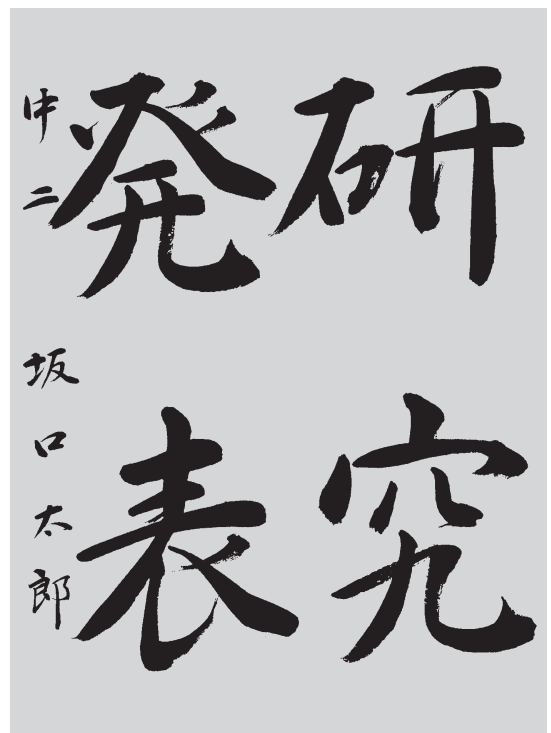 研究
発表
中二 坂口太郎